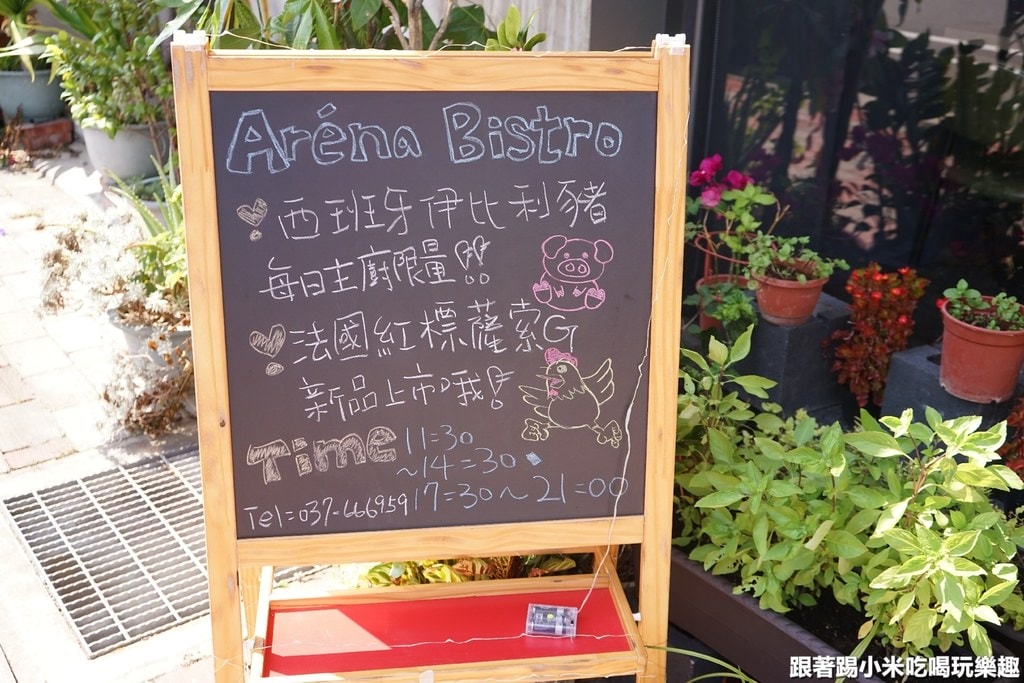 Aréna Bistro
西班牙伊比利豬
每日主廚限量!!
法國紅標薩索G
新品上市哦!
Time 11:30
~14:30
Tel=037-666959 17:30~21:00
跟著踢小米吃喝玩樂趣